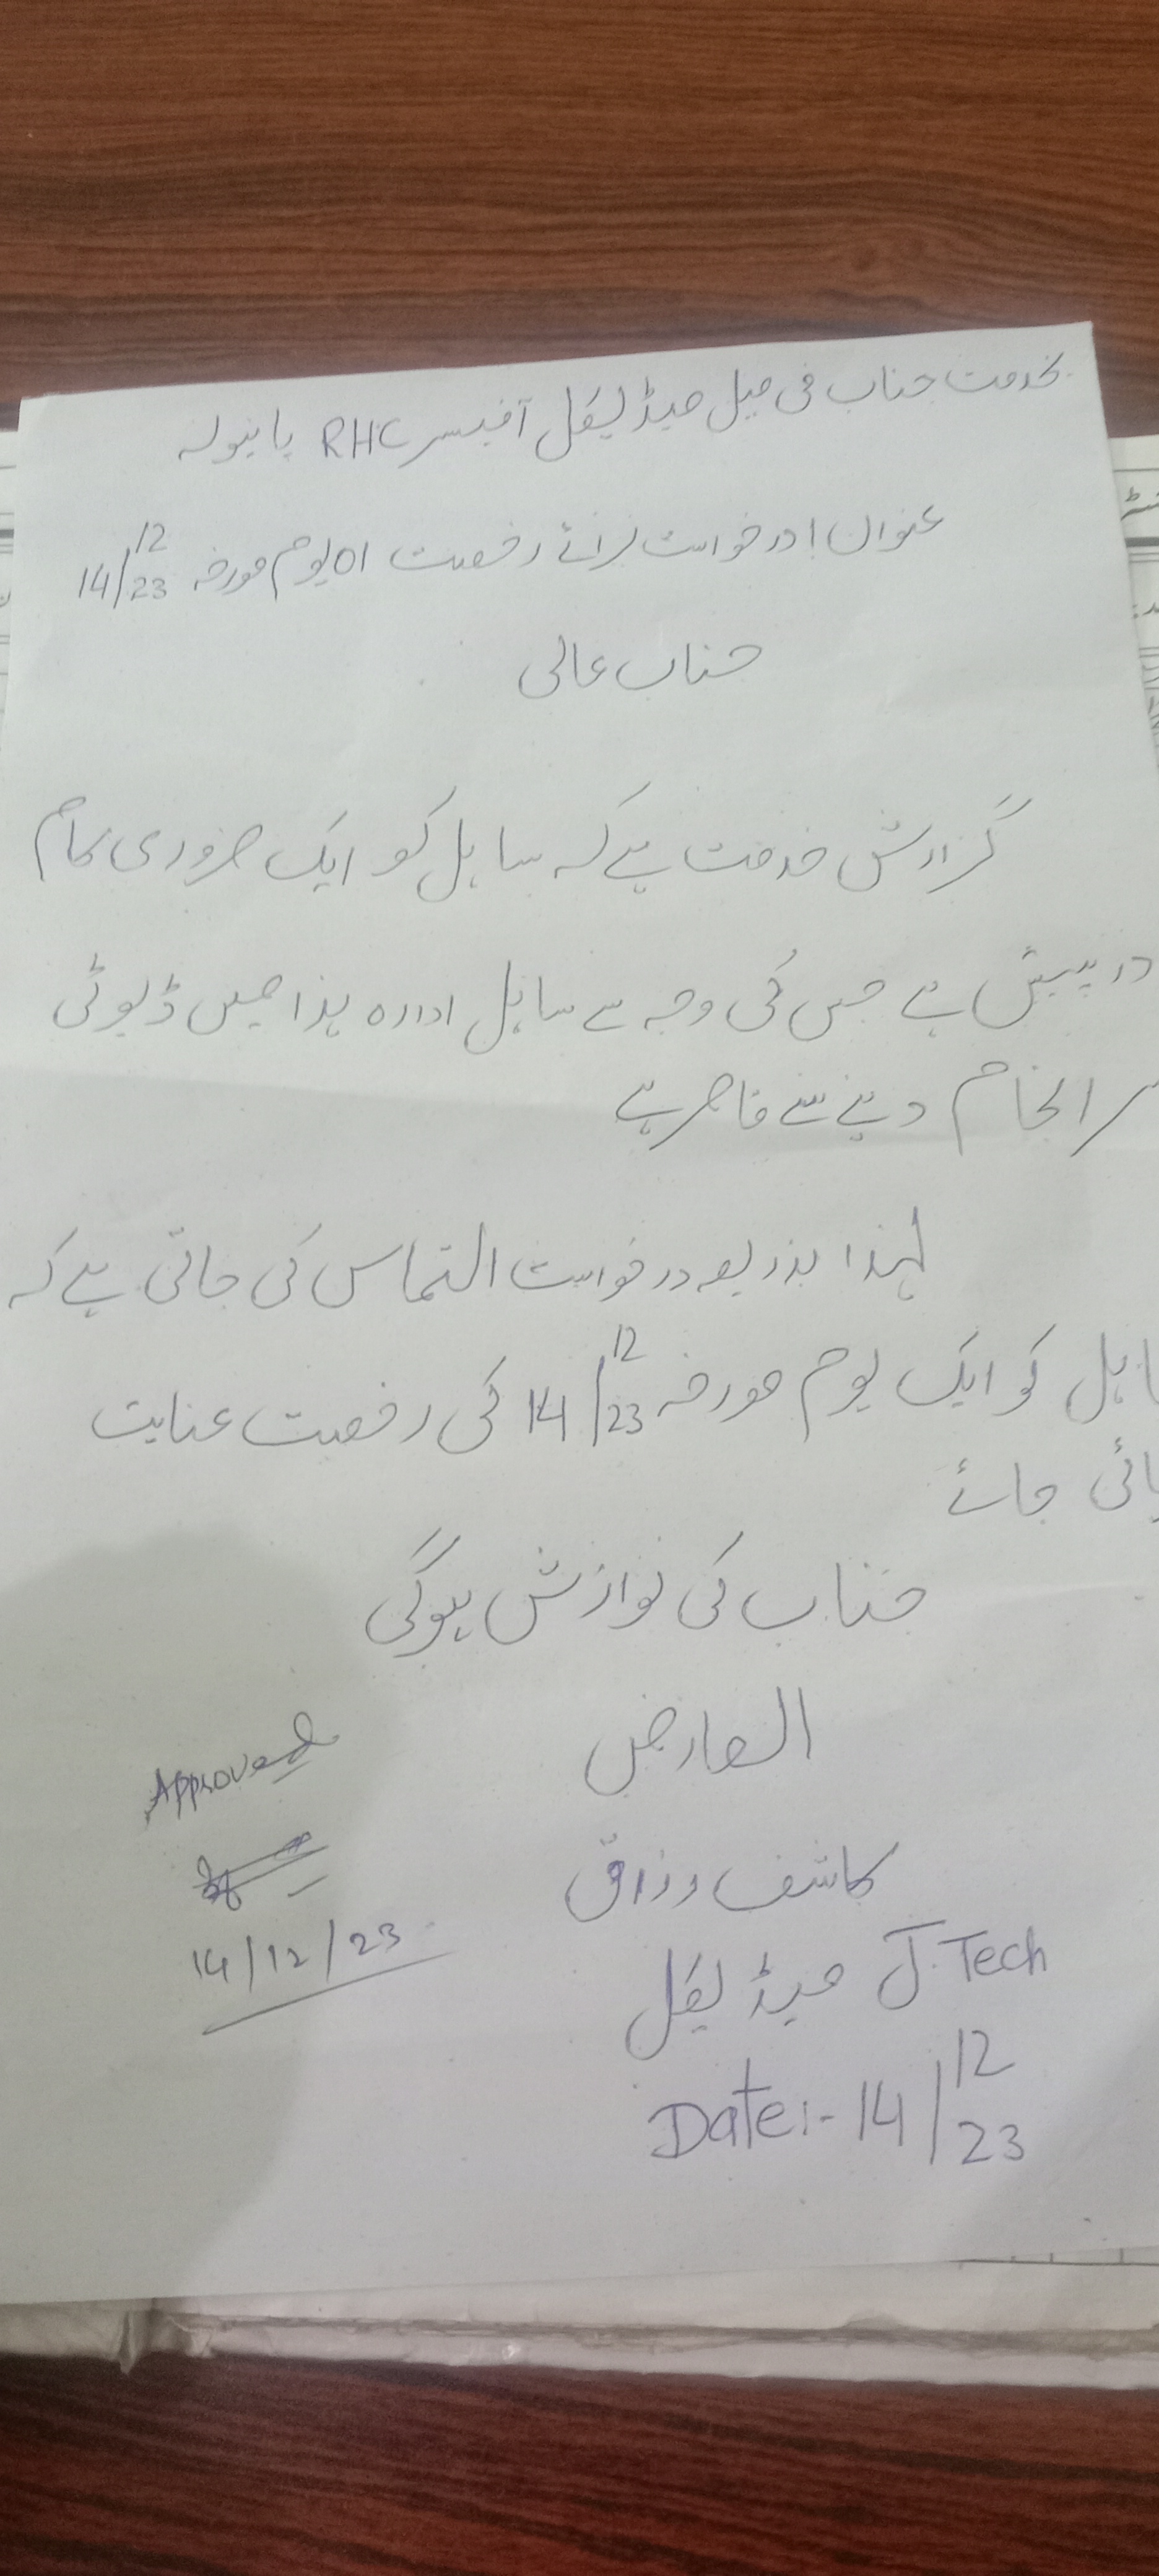 بخدمت جناب فی میل میڈیکل آفیسر RHC پانیولہ
عنوان! درخواست برائے رخصت 01 یوم مورخہ 14/12/23
جناب عالی
گزارش خدمت ہے کہ سائل کو ایک ضروری کام
درپیش ہے جس کی وجہ سے سائل ادارہ ہذا میں ڈیوٹی
سرانجام دینے سے قاصر ہے
لہذا بذریعہ درخواست التماس کی جاتی ہے کہ
سائل کو ایک یوم مورخہ 14/12/23 کی رخصت عنایت
جائے
جناب کی نوازش ہوگی
العارض
کاشف رزاق
J.Tech میڈیکل
Date:- 14/12/23
Approved
14/12/23